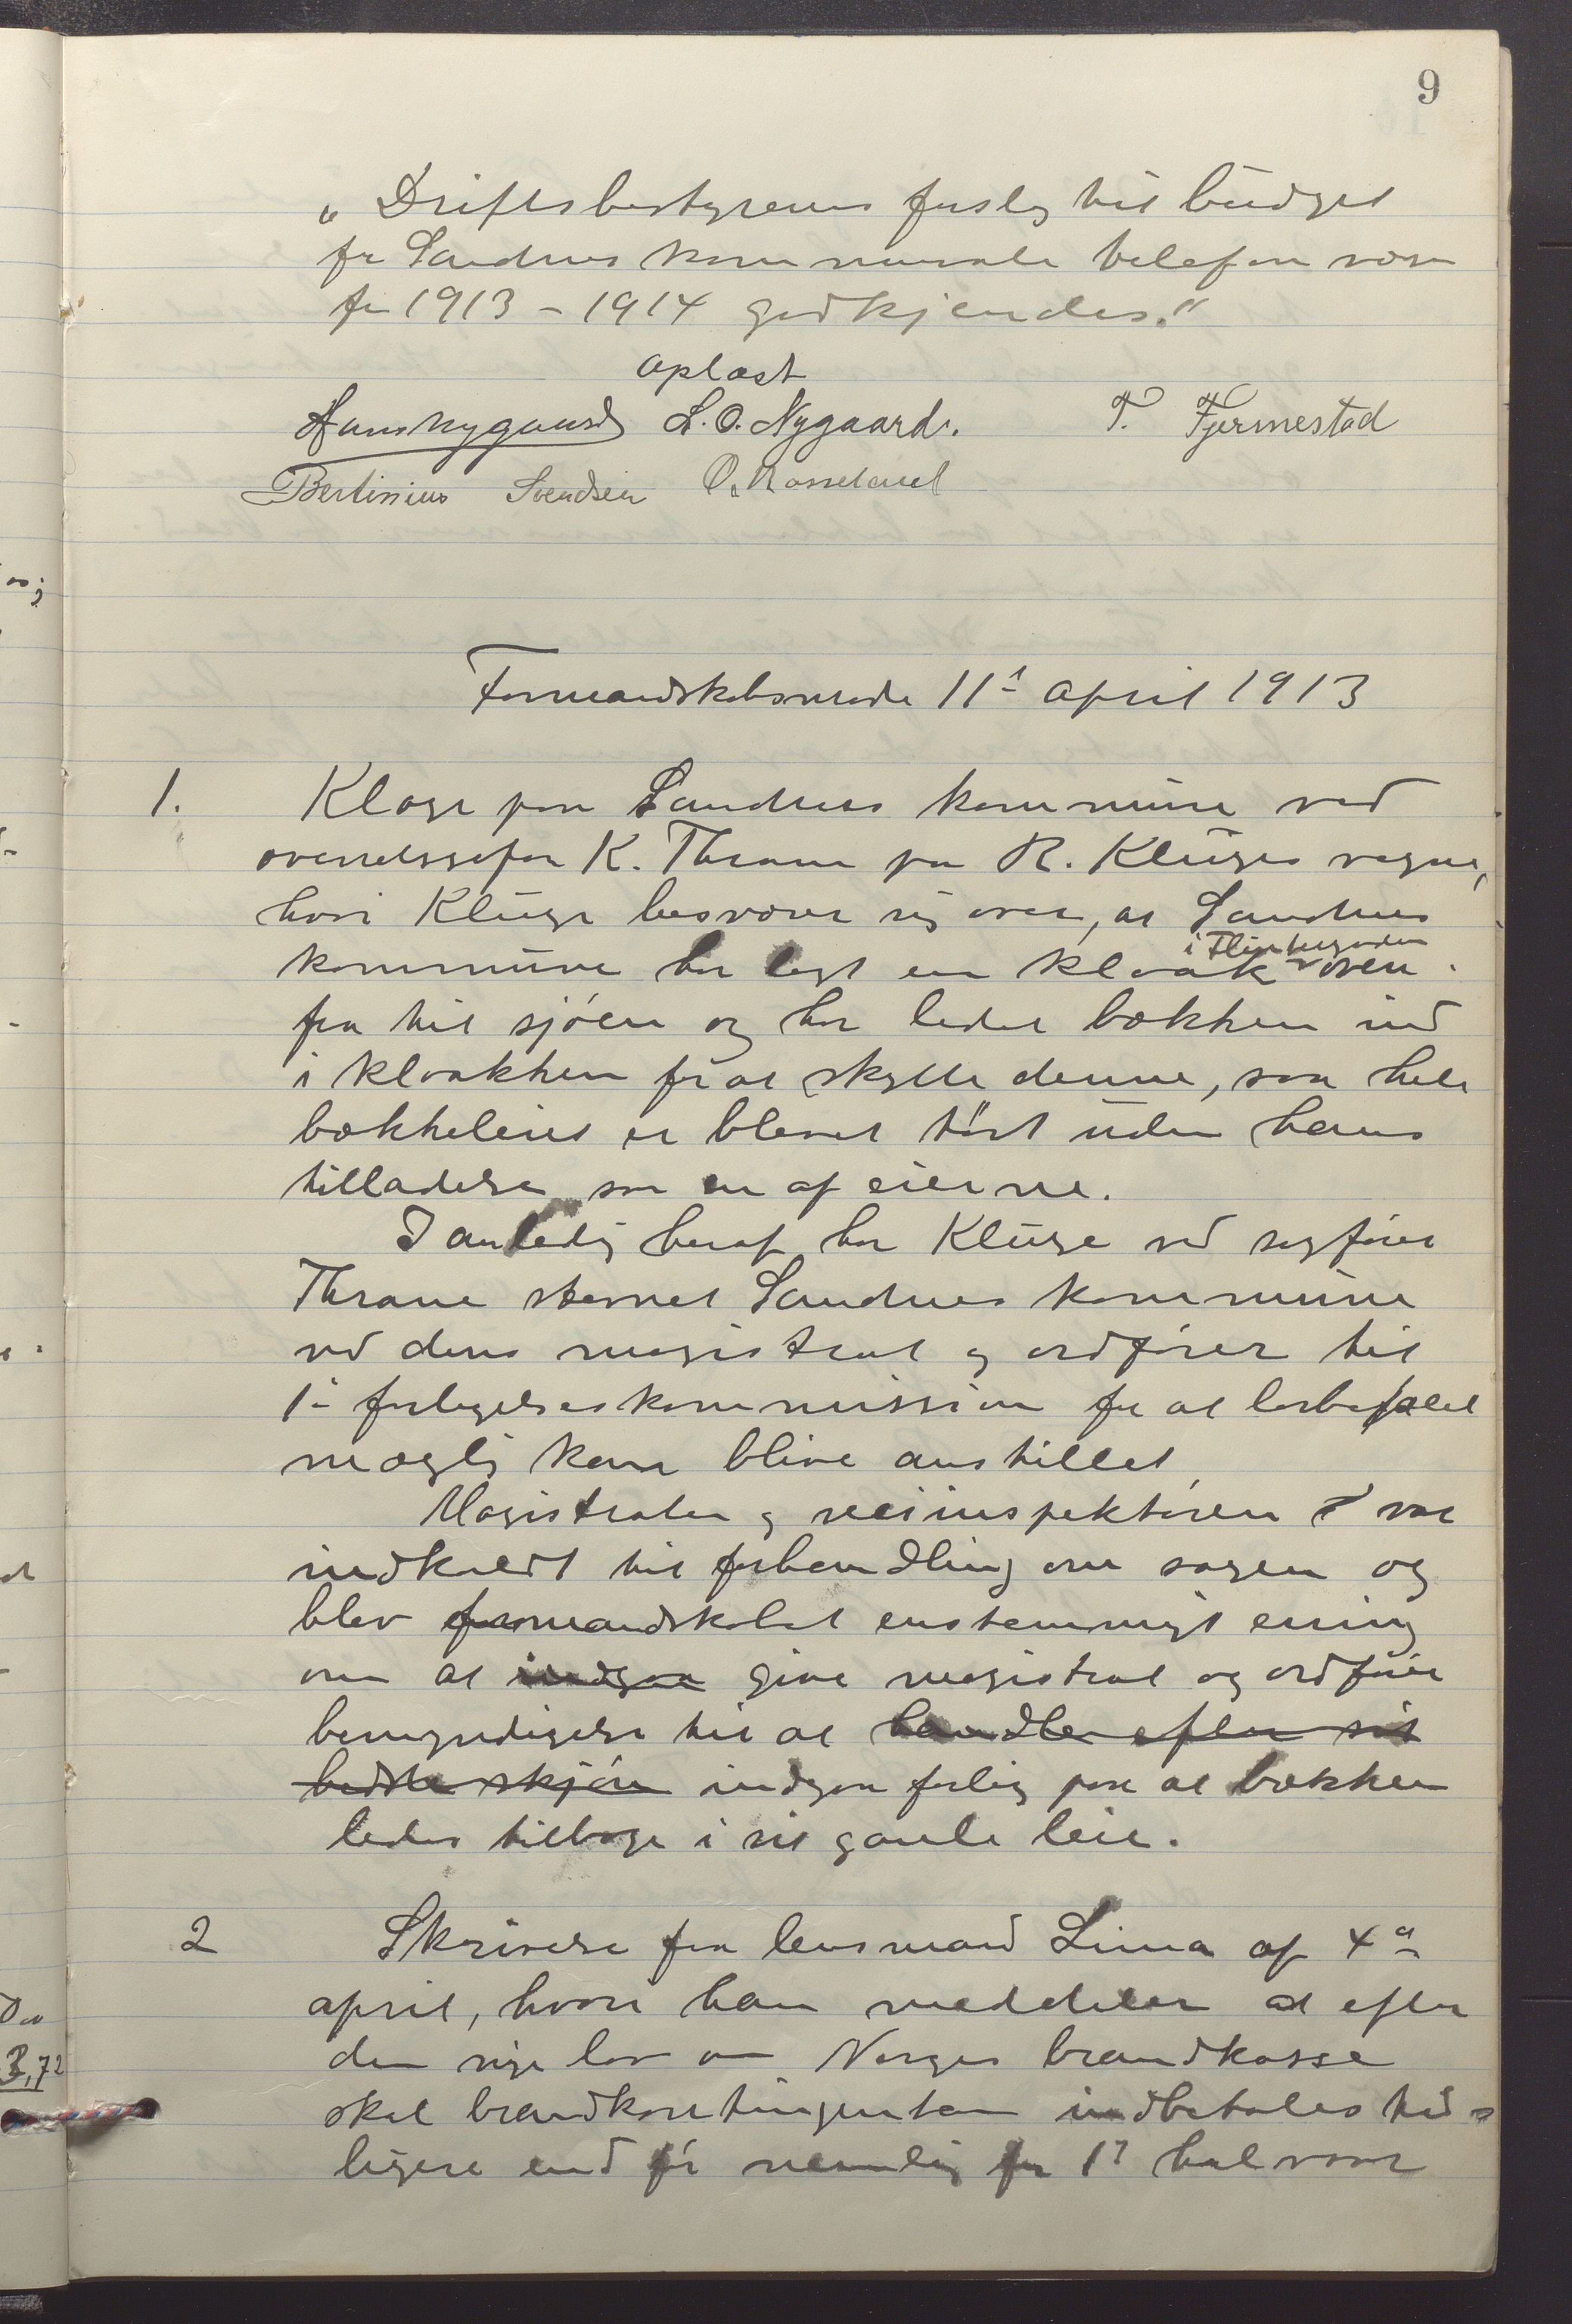 9
„Driftsbestyrerens forslag til budget
for Sandnes kommunale telefonvæsen
for 1913 - 1914 godkjendes."
Oplæst
Hans Nygaard L. O. Nygaard. T. Fjermestad
Bertinius Svendsen O. Rosseland
Formandskabsmøde 11te april 1913
1. Klage paa Sandnes kommune ved
overretssagfør K. Thrane paa R. Kluges vegne,
hvori Kluge besværer sig over, at Sandnes
i Flintegaden
kommune har lagt en kloak oven
fra til sjøen og har ledet bækken ind
i kloakken for at skylle denne, saa hele
bækkeleiet er blevet tørt uden hans
tilladelse som en af eierne.
I anledig heraf har Kluge ved sagfører
Thrane stevnet Sandnes kommune
ved dens magistrat og ordfører til
1ste forligelseskommission for at lovbefalet
mægling kan blive anstillet.
Magistraten og veiinspektøren var
indkaldt til forhandling om sagen og
blev formandskabet enstemmigt enig
om at indgaa give magistrat og ordfører
bemyndigelse til at handle efter sit
bedste skjøn indgaa forlig paa at bækken
ledes tilbage i sit gamle leie.
2 Skrivelse fra lensmand Lima af 4de
april, hvori han meddeler at efter
den nye lov om Norges brandkasse
skal brandkontingenten indbetales tid-
ligere end før nemlig for 1ste halvaar